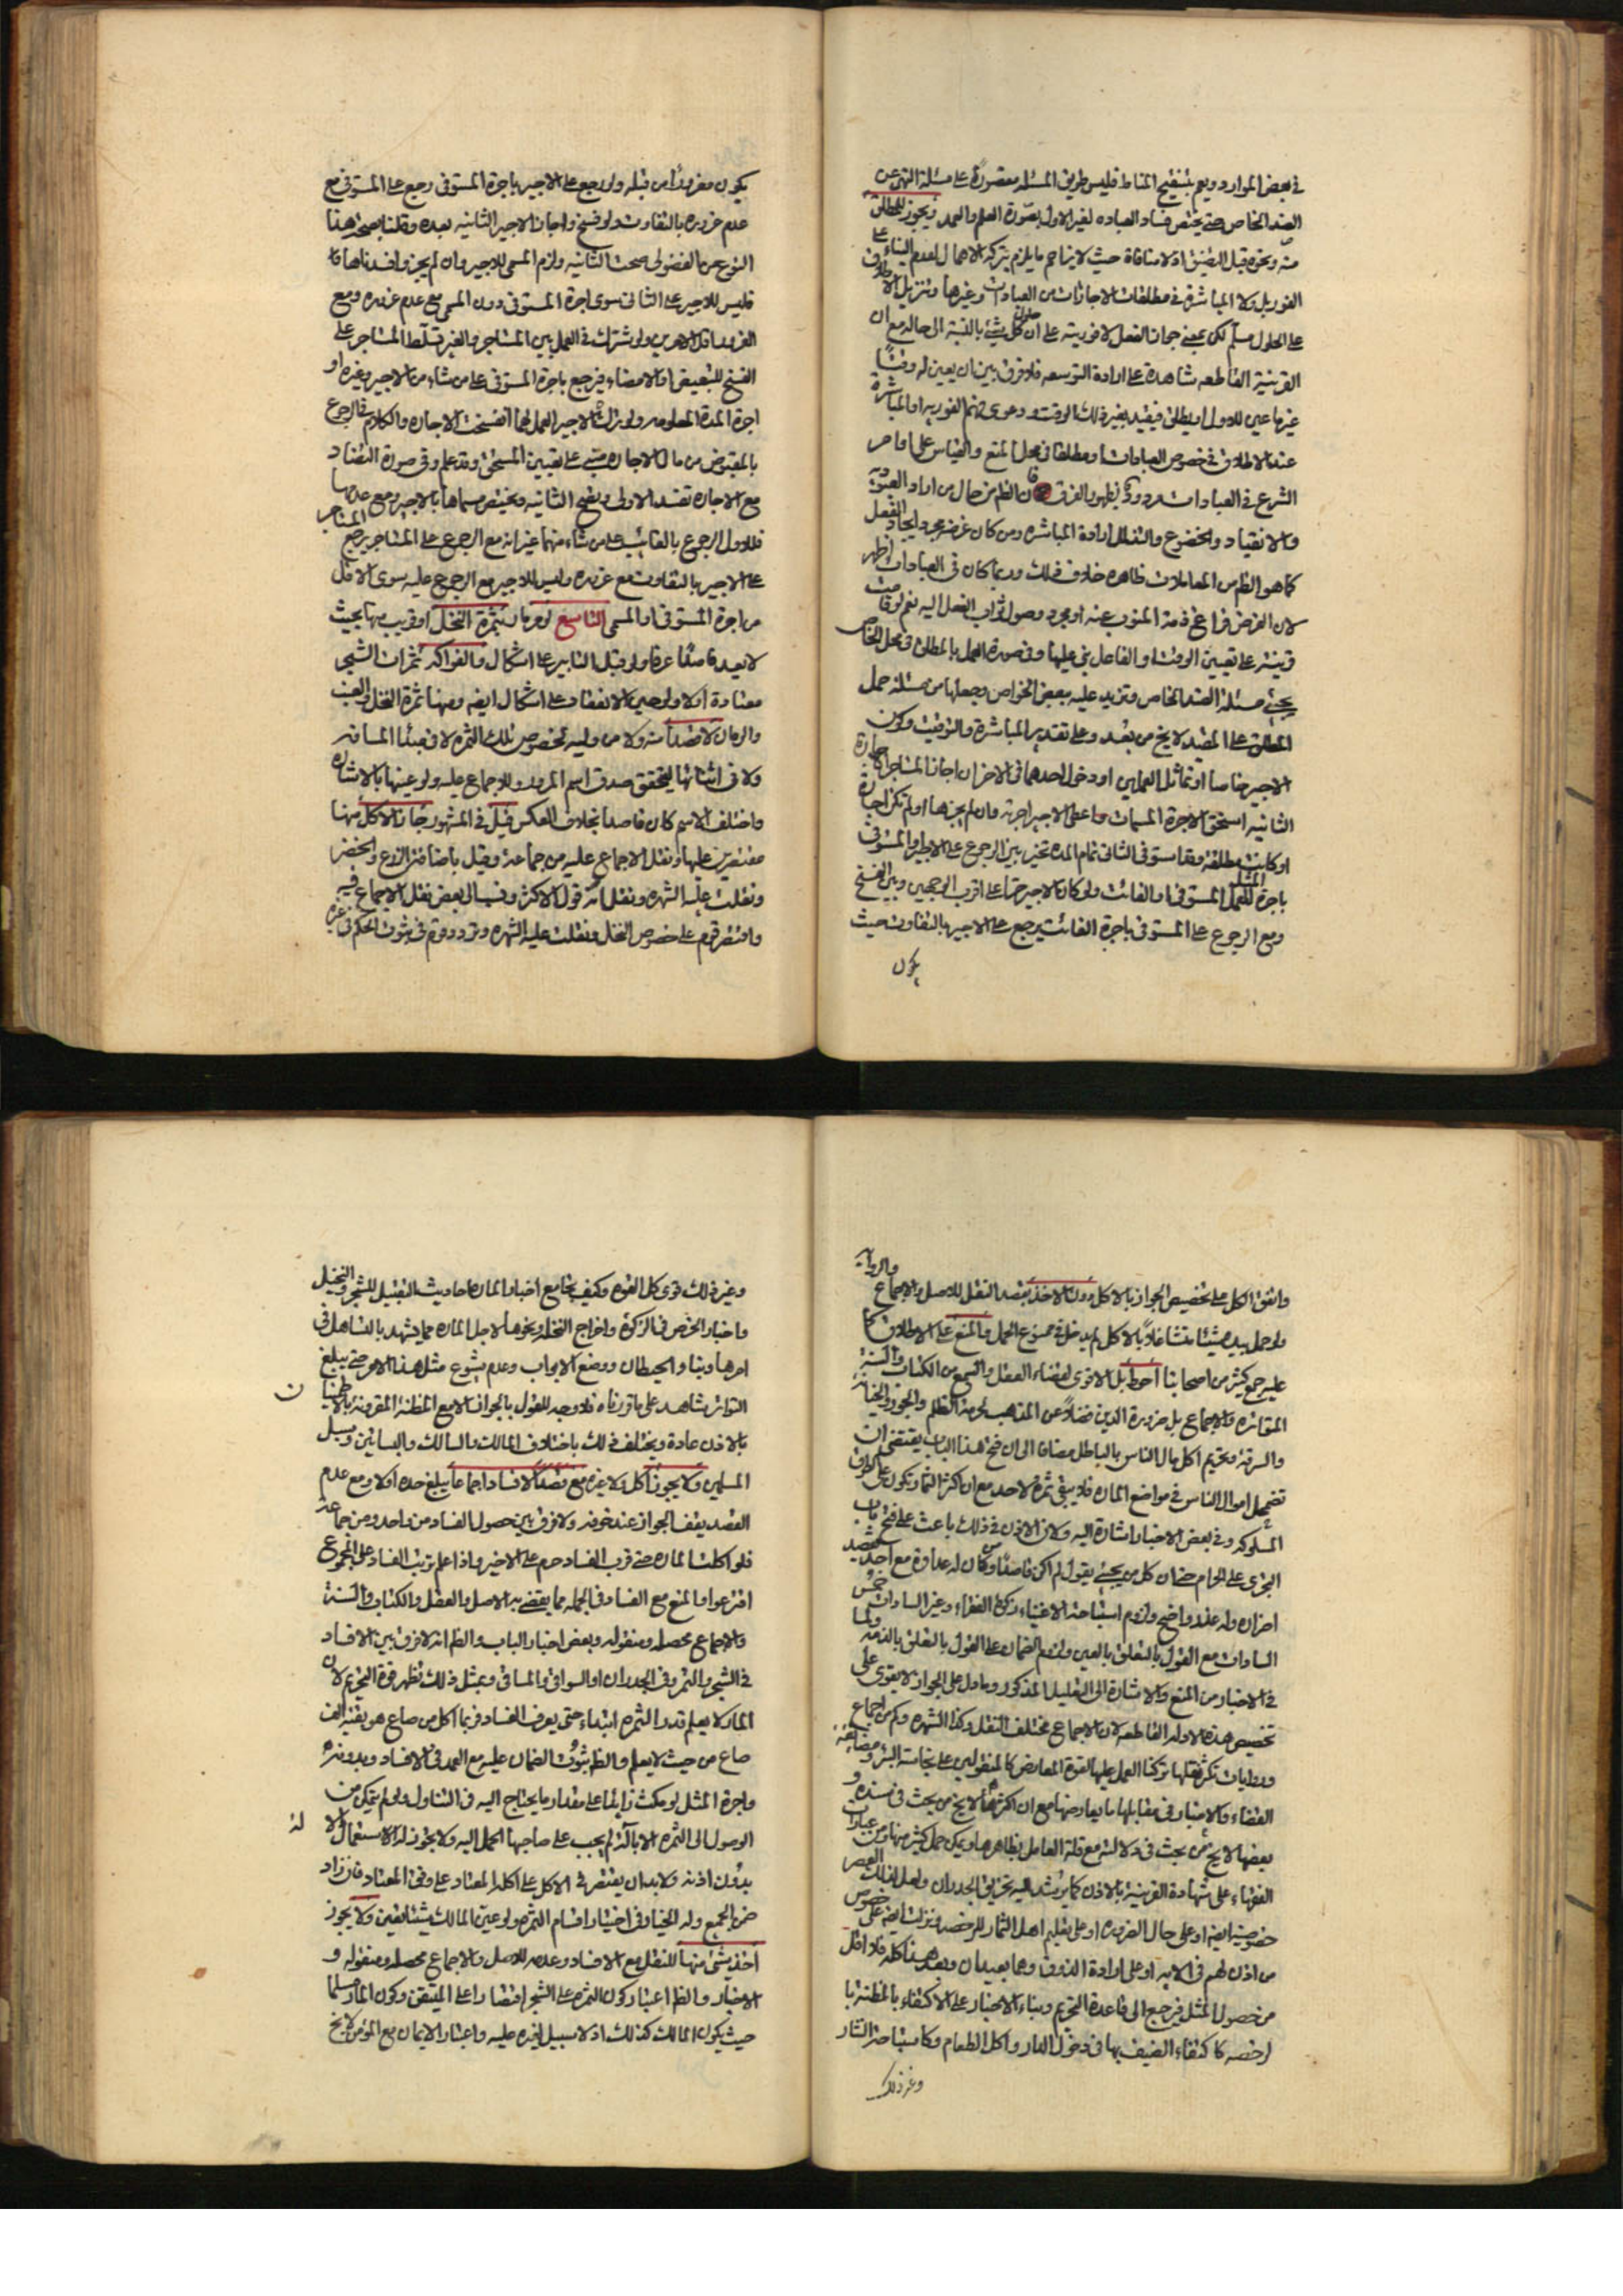 في بعض الموارد ويعم بتنقيح المناط فليس طريق المسئله مقصورة على مسئلة النهي عن
الضد الخاص حتى يختص فساد العباده لغير الاول بصورة العلم والعمد ويجوز للمطلق
منه ونحوه قبل الضيق اذ لا منافاة حيث لا يزاحم ما يلزم بتركه الاهمال لعدم البناء على
الفور بل ولا المباشرة في مطلقات الاجازات من العبادات وغيرها وتنزيل الاطلاق
على الحلول مسلم لكن بمعنى جواز الفعل لا فوريته على ان حلول كل شيء بالنسبة الى حاله مع ان
القرينة القاطعه شاهدة على ارادة التوسعه فلا فرق بين ان يعين له وقتاً
غير ما عين للاول او يطلق فيقيد بغير ذلك الوقت ودعوى لزوم الفوريه او المباشرة
عند الاطلاق في خصوص العبادات او مطلقا في محل المنع والقياس على اوامر
الشرع في العبادات مردود بظهور الفرق فان الظ من حال من اراد العبوديه
والانقياد والخضوع والتذلل ارادة المباشره ومن كان غرضه مجرد ايجاد الفعل
كما هو الظ من المعاملات ظاهره خلاف ذلك وربما كان في العبادات اظهر
لان الغرض فراغ ذمة المنوب عنه او مجرد وصول ثواب الفعل اليه نعم لو قامت
قرينة على تعيين الوقت او الفاعل بنى عليها وفي صورة العمل بالمطلق في محل الخاص
يجئ مسئلة الضد الخاص وتزيد عليه ببعض الخواص وجعلها من مسئلة حمل
المطلق على المقيد لا يخ من بعد وعلى تقدير المباشرة والتوقيت وكون
الاجير خاصا او تماثل العملين او دخول احدهما في الاخر ان اجاز المستاجر الاجارة
الثانيه استحق الاجرة المسمات واعطى الاجير اجرته وان لم يجزها او لم تكن اجارة
او كانت مطلقة وقد استوفى الثاني تمام المده تخير بين الرجوع على الاجير او المستوفي
باجرة المثل للعمل المستوفى او الفائت ولو كان الاجير حرا على اقرب الوجهين وبين الفسخ
ومع الرجوع على المستوفي باجرة الفائت يرجع على الاجير بالتفاوت حيث
يكون
يكون مغروراً من قبله ولو رجع على الاجير باجرة المستوفى رجع على المستوفي مع
عدم غروره بالتفاوت ولو فسخ واجاز الاجير الثانيه بعده وقلنا بصحة هذا
النوع من الفضولي صحت الثانيه ولزم المسمى للاجير وان لم يجز وافسدناها
فليس للاجير على الثاني سوى اجرة المستوفى دون المسمى مع عدم غروره ومع
الغرور اقل الامرين ولو شرك في العمل بين المستاجر والغير تسلط المستاجر على
الفسخ للتبعيض او الامضاء فيرجع باجرة المستوفى على من شاء من الاجير وغيره او
اجرة المدة المعلومه ولو ترك الاجير العمل لهما انفسخت الاجاره والكلام في الرجوع
بالمقبوض من مال الاجاره مبني على تعيين المستحق وقد علم وفي صورة التضاد
مع الاجاره تفسد الاولى ويفسخ الثانيه ويختص مسماها بالاجير ومع عدمها
فللاول الرجوع بالفائت على من شاء منهما غير انه مع الرجوع على المستاجر يرجع المستاجر
على الاجير بالتفاوت مع غروره وليس للاجير مع الرجوع عليه سوى الاقل
من اجرة المستوفى او المسمى التاسع لو مر مار بثمرة النخل او قريب منها بحيث
لا يعد قاصداً عرفا ولو قبل التابير على اشكال والفواكه ثمرات الشجر
معتادة او لا ولو حين الانعقاد على اشكال ايضه ومنها ثمرة النخل والعنب
والرمان لا قصداً منه ولا من وليه لخصوص تلك الثمره لا في مبدأ المسافه
ولا في اثنائها ليتحقق صدق اسم المرور وللاجماع عليه ولو عينها بالاشاره
واختلف الاسم كان قاصدا بخلاف العكس قيل في المشهور جاز الاكل منها
مقتصرين عليها ونقل الاجماع عليه من جماعة وقيل باضافة الزرع والخضر
ونقلت عليه الشهره ونقل انه قول الاكثر ونسب الى بعض نقل الاجماع فيه
واقتصر قوم على خصوص النخل ونقلت عليه الشهره وتردد قوم في ثبوت الحكم في غيره
واتفق الكل على تخصيص الجواز بالاكل دون الاخذ بقصد النقل للاصل والاجماع والروايه
ولو حمل بيده شيئا متشاغلا بالاكل لم يدخل في ممنوع الحمل والمنع على الاطلاق كما
عليه جمع كثير من اصحابنا احوط بل الاقوى لقضاء العقل والسمع من الكتاب والسنة
المتواتره والاجماع بل ضرورة الدين فضلاً عن المذهب بحرمة الظلم والجور والخيانه
والسرقة وتحريم اكل مال الناس بالباطل مضافا الى ان فتح هذا الباب يقتضي ان
تضمحل اموال الناس في مواضع الماره فلا يبقى ثمرة لاحد مع ان اكثر الثمار تكون على الطرق
المسلوكه وفي بعض الاخبار اشارة اليه ولان الاذن في ذلك باعث على فتح باب
التجري على الحرام حتى ان كل من يجئ يقول لم اكن قاصدا ومن كان له عداوة مع احد يقصد
اضراره وله عذر واضح ولزوم استباحة الاغنياء زكوة الفقراء وغير السادات خمس
السادات مع القول بالتعلق بالعين ولزوم الضمان على القول بالتعلق بالذمه ولما
في الاخبار من المنع والاشارة الى التعليل المذكور وما دل على الجواز لا يقوى على
تخصيص هذه الادله القاطعه لان الاجماع مختلف النقل وكذا الشهره وكم من اجماع
وروايات تكثر نقلها تركنا العمل عليها لقوة المعارض كالمنقولين على نجاسة البئر ومضايقة
القضاء والاخبار في مقابلها ما يعارضها مع ان اكثرها لا يخ من بحث في سنده و
بعضها لا يخ من بحث في دلالته مع قلة العامل بظاهرها ويمكن حمل كثير منها ومن عبارات
الفقهاء على شهادة القرينة بالاذن كما يرشد اليه تخريق الجدران ولعل لذلك العصر
خصوصية ايضه او على حال الضروره او على تعليم اهل الثمار للرخصه وتنزل ايضه على خصوص
من اذن لهم في الايه او على ارادة الذوق وهما بعيدان وبعد هذا كله فلا اقل
من حصول المثل فيرجع الى قاعدة التحريم وبناء الاخبار على الاكتفاء بالمظنة با
لرخصه كاكتفاء الضيف بها في دخول الدار واكل الطعام وكاستباحة النثار
وغير ذلك
وغير ذلك قوى كل القوه وكيف يجامع اخبار الماره احاديث التقبيل للشجر والنخيل
واخبار الخرص في الزكوة واخراج النخله ونحوها لاجل الماره مما يشهد بالتساهل في
امرها وبناء الحيطان ووضع الابواب وعدم شيوع مثل هذا الامر حتى يبلغ
التواتر شاهد على ما قررناه فلا وجه للقول بالجواز الا مع المظنة المقرونة بالاطمينان
بالاذن عادة ويختلف ذلك باختلاف الممالك والمسالك والبساتين وسبل
المسلمين ولا يجوز اكل ولا غيره مع قصد الافساد اجماعا يبلغ حده او لا ومع عدم
القصد يقف الجواز عند خوفه ولا فرق بين حصول الفساد من واحد ومن جماعة
فلو اكلت الماره حتى قرب الفساد حرم على الاخير واذا علم ترتب الفساد على المجموع
اقترعوا والمنع مع الفساد في الجمله مما يقضي به الاصل والعقل والكتاب والسنة
والاجماع محصله ومنقوله وبعض اخبار الباب والظ انه لا فرق بين الافساد
في الشجر والثمر وفي الجدران او السواقي والمساقي وبمثل ذلك تظهر قوة التحريم لان
المار لا يعلم قدر الثمره ابتداء حتى يعرف الفساد فربما اكل من صاع هو بقية الف
صاع من حيث لا يعلم والظ ثبوت الضمان عليه مع العمد في الافساد وبدونه
واجرة المثل لو مكث زايدا على مقدار ما يحتاج اليه في التناول ولو لم يتمكن من
الوصول الى الثمره الا بآلة لم يجب على صاحبها الحمل اليه ولا يجوز له الاستعمال الا
بدون اذنه ولابد ان يقتصر في الاكل على اكله المعتاد على وفق المعتاد فان زاد
ضمن الجميع وله الخيار في اختيار اقسام الثمره ولو عين المالك شيئا تعين ولا يجوز
اخذ شئ منها للنقل مع الافساد وعدمه للاصل والاجماع محصله ومنقوله و
الاخبار والظ اعتبار كون الثمره على الشجر اقتصارا على المتيقن وكون المار مسلما
حيث يكون المالك كذلك اذ لا سبيل لغيره عليه واعتبار الايمان مع المؤمن لا يخ